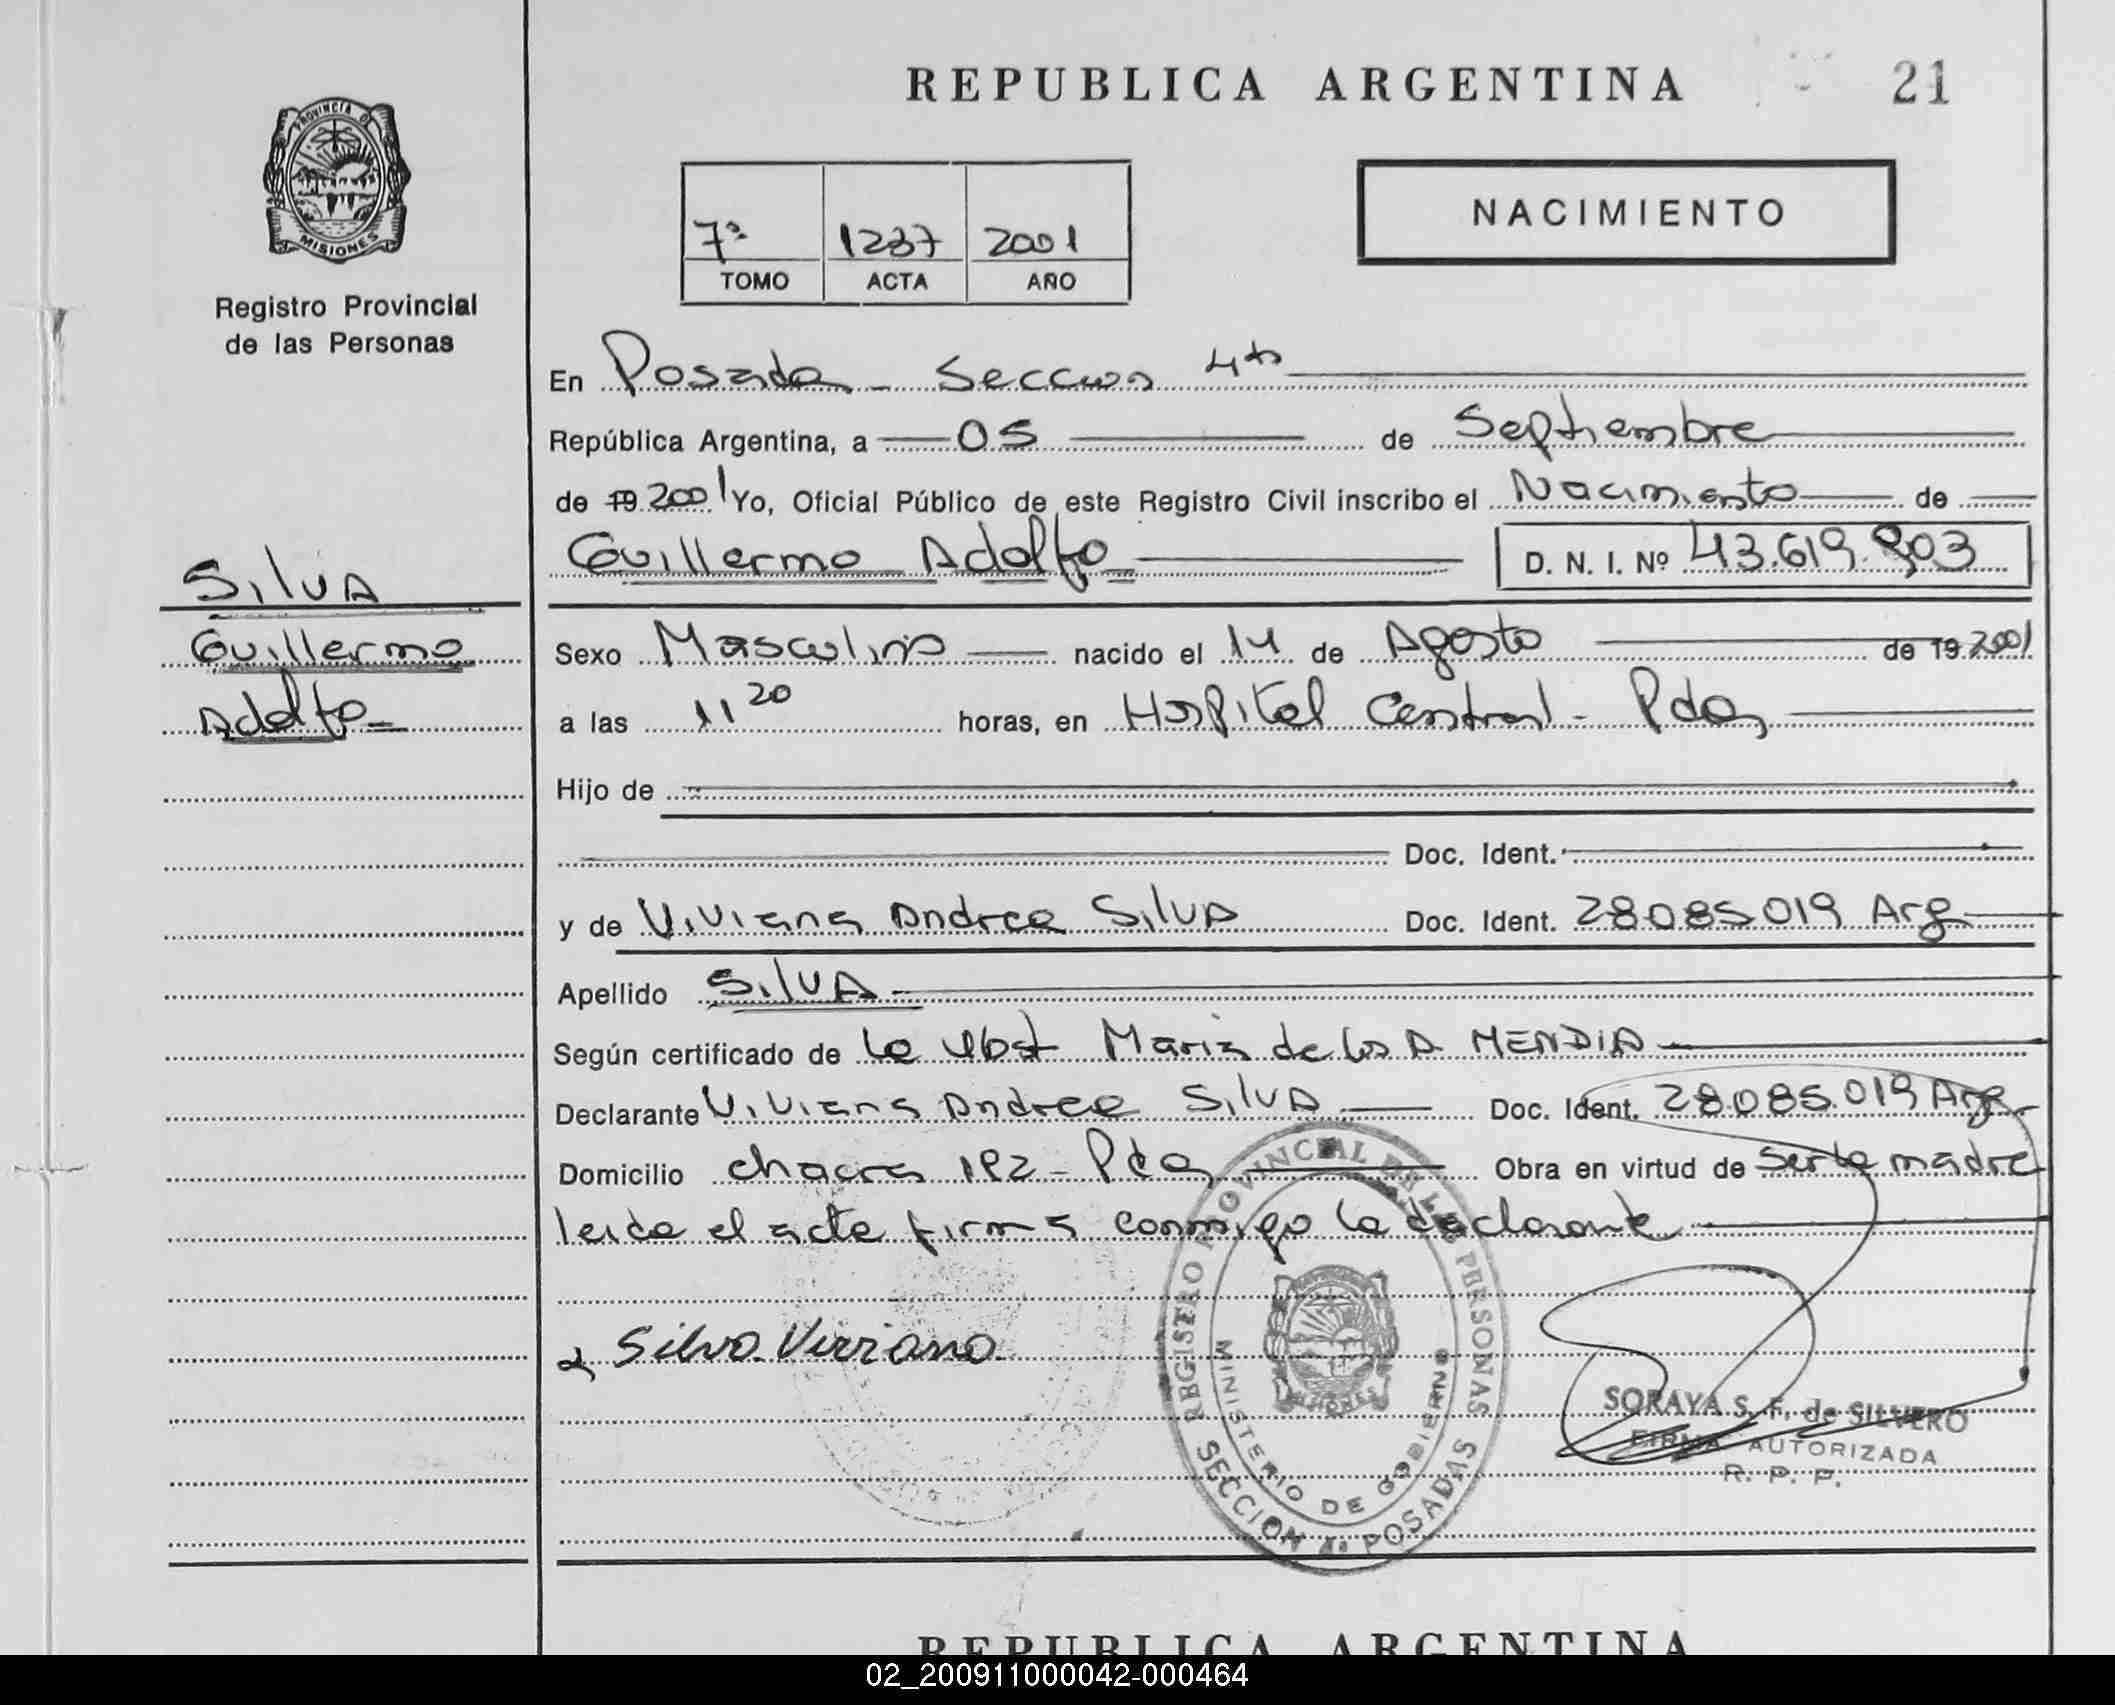 REPUBLICA ARGENTINA
21
PROVINCIA DE
MISIONES
Registro Provincial
de las Personas
7º 1237 2001
TOMO ACTA AÑO
NACIMIENTO
En Posadas - Seccion 4ta
República Argentina, a 05 de Septiembre
de 19 2001 Yo, Oficial Público de este Registro Civil inscribo el Nacimiento de
Guillermo Adolfo D. N. I. Nº 43.619.903
SILVA
Guillermo
Adolfo
Sexo Masculino nacido el 14 de Agosto de 19 2001
a las 11 20 horas, en Hospital Central - Pdas
Hijo de
Doc. Ident.
y de Viviana Andrea Silva Doc. Ident. 28.085.019 Arg
Apellido SILVA
Según certificado de la Obst Maria de los A. MENDIA
Declarante Viviana Andrea Silva Doc. Ident. 28.085.019 Arg
Domicilio chacra 192 - Pdas Obra en virtud de ser la madre
leida el acta firma conmigo la declarante
Silva Viviana
REGISTRO PROVINCIAL DE LAS PERSONAS
MINISTERIO DE GOBIERNO
MISIONES
SECCION 4a POSADAS
SORAYA S. F. de SILVERO
FIRMA AUTORIZADA
R. P. P.
REPUBLICA ARGENTINA
02_200911000042-000464